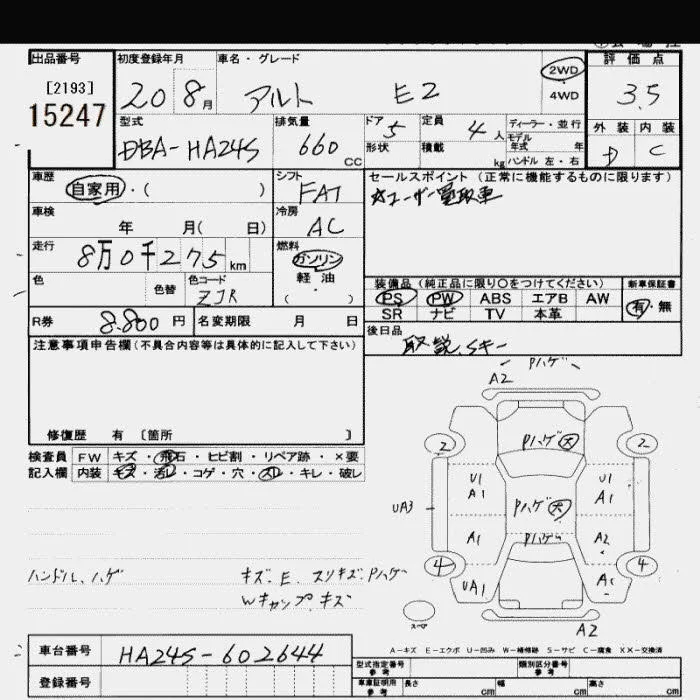 出品番号
[2193]
15247
初度登録年月
20 8月
車名・グレード
アルト E2
2WD
4WD
評価点
3.5
型式
DBA-HA24S
排気量
660 CC
ドア 5
形状
定員 4 人
積載 kg
ディーラー・並行
モデル年式 年
ハンドル 左・右
外装 内装
D C
車歴
自家用・( )
シフト
FAT
セールスポイント (正常に機能するものに限ります)
☆ユーザー買取車
車検 年 月( 日)
冷房
AC
走行
8万0千275 km
燃料
ガソリン
軽油
( ・ )
色
色替
色コード
ZJR
装備品(純正品に限り○をつけてください)
新車保証書
PS PW ABS エアB AW
SR ナビ TV 本革
有・無
R券 8.800 円
名変期限 月 日
後日品
取説、Sキー
注意事項申告欄(不具合内容等は具体的に記入して下さい)
修復歴 有 〔箇所 〕
検査員記入欄
FW キズ・飛石・ヒビ割・リペア跡・×要
内装 キズ・汚レ・コゲ・穴・スレ・キレ・破レ
ハンドル、ハゲ
キズ.E.スリキズ.Pハゲ
Wキャップ.キズ
Pハゲ
A2
2 Pハゲ大 2
U1 U1
A1 A1
UA3 Pハゲ大
A1 Pハゲ A2
4 4
UA1
スペア
A2
A-キズ E-エクボ U-凹み W-補修跡 S-サビ C-腐食 XX-交換済
車台番号
HA24S-602644
登録番号
型式指定番号 参考
類別区分番号 参考
車庫証明用 参考 長さ cm 幅 cm 高さ cm